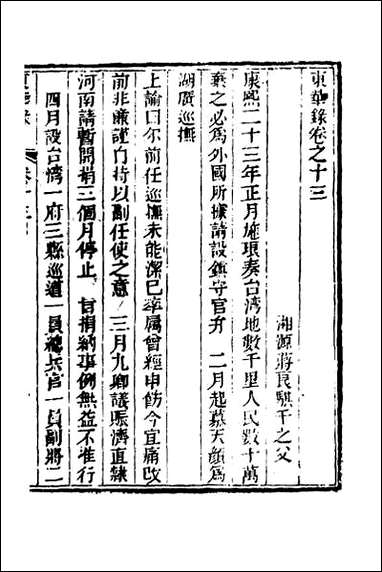 東華錄卷之十三
湘源蔣良騏千之父
康熙二十三年正月施琅奏台湾地數千里人民數十萬
棄之必爲外國所據請設鎮守官弁　二月起慕天顏爲
湖廣巡撫
上諭曰尔前任巡撫未能潔已率属曾經申飭今宜痛改
前非嚴謹自持以副任使之意　三月九卿議賑濟直隸
河南請暫開捐三個月停止　旨捐納事例無益不准行
四月設台湾一府三縣巡道一員總兵官一員副將二